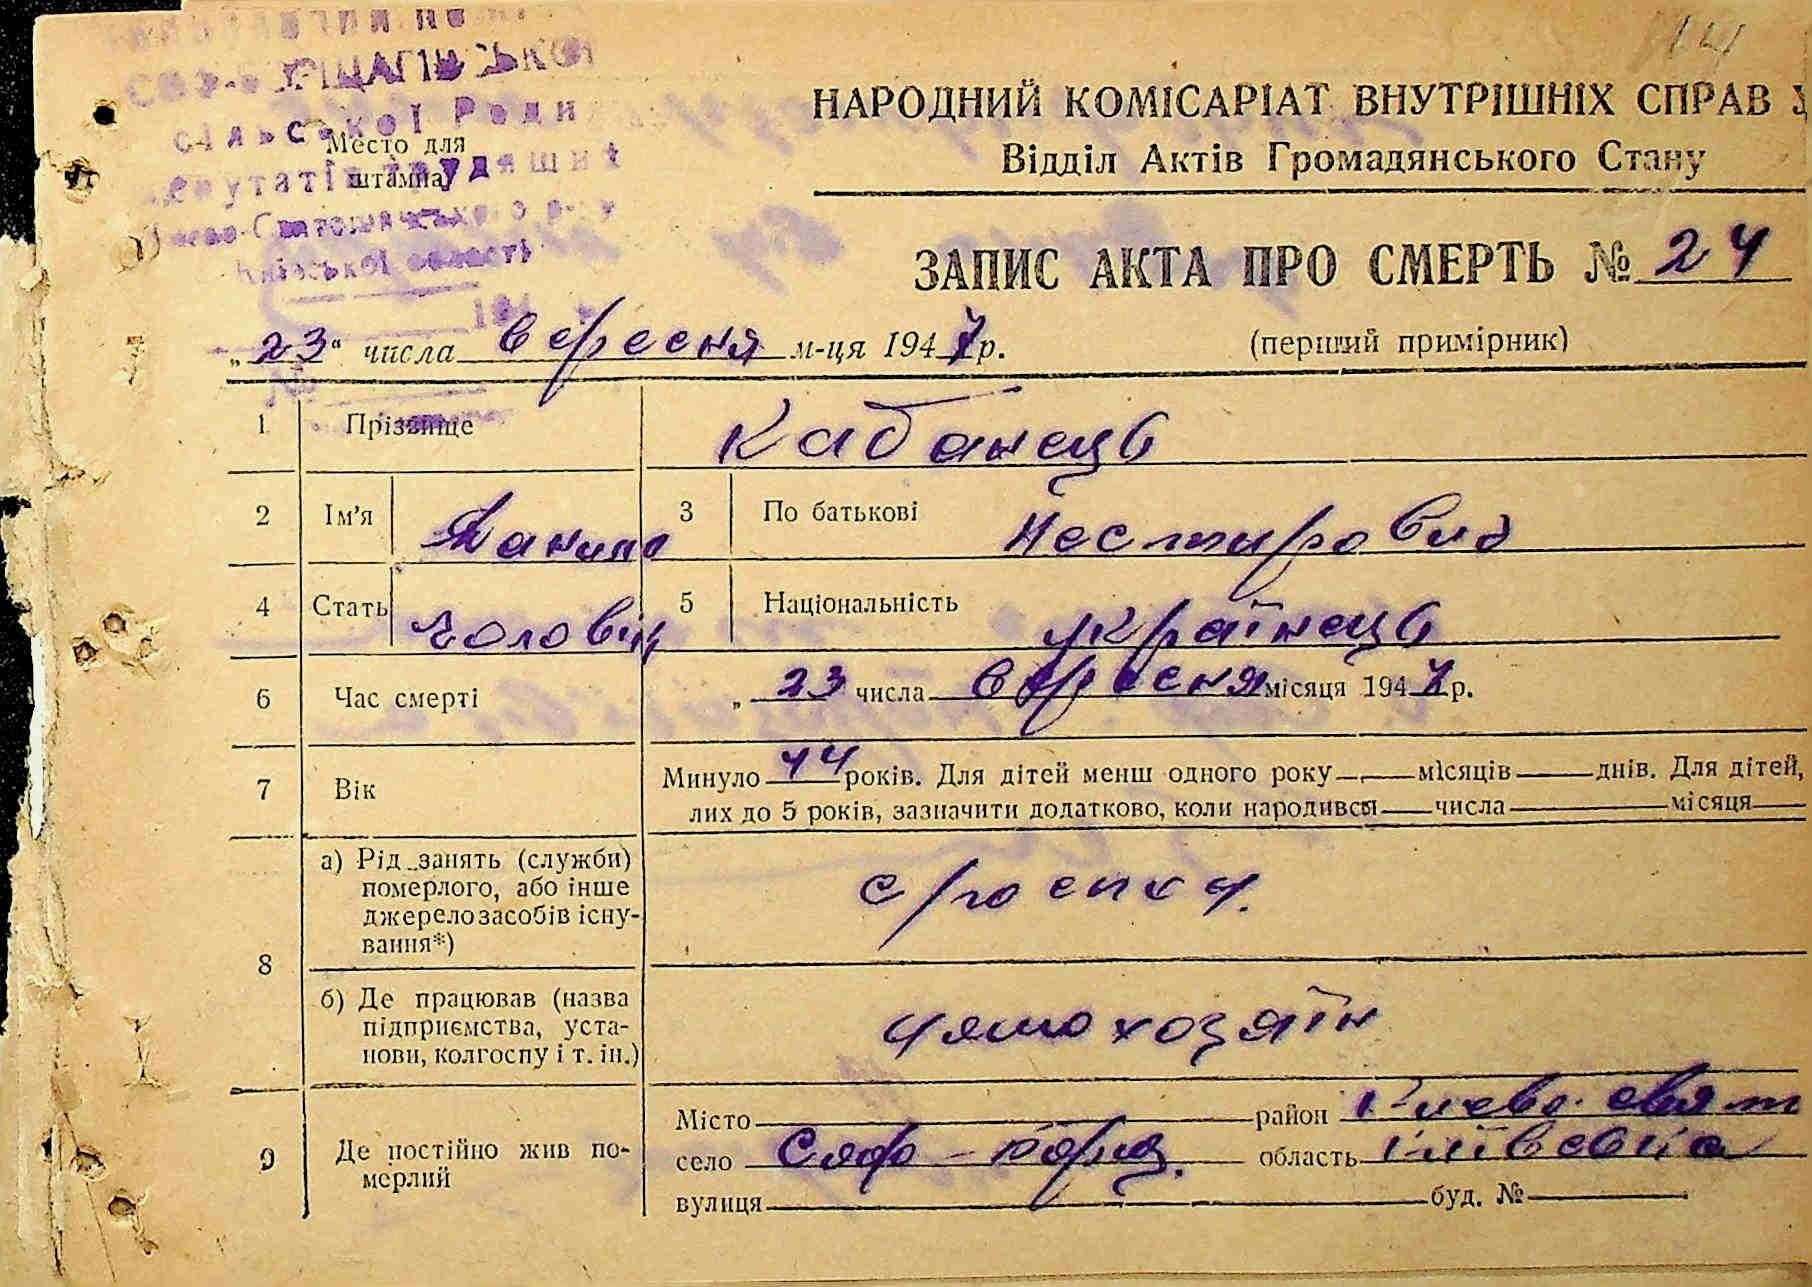 14
НАРОДНИЙ КОМІСАРІАТ ВНУТРІШНІХ СПРАВ У
Відділ Актів Громадянського Стану
сільської Ради
Место для
штампа
депутатів трудящих
Києво-Святошинського р-ну
Київської области
194
ЗАПИС АКТА ПРО СМЕРТЬ № 24
„23“ числа вересня м-ця 1947 р. (перший примірник)
1 Прізвище Кабанець
2 Ім’я Данило 3 По батькові Нестирович
4 Стать чоловік 5 Національність українець
6 Час смерті „ 23 числа вересня місяця 1947 р.
7 Вік Минуло 44 років. Для дітей менш одного року — місяців — днів. Для дітей,
лих до 5 років, зазначити додатково, коли народився — числа — місяця —
8 а) Рід занять (служби)
померлого, або інше
джерело засобів існу-
вання*)
б) Де працював (назва
підприємства, уста-
нови, колгоспу і т. ін.)
9 Де постійно жив по-
мерлий
Місто — район Києво-Свят
село Соф-Борщ. область Київська
вулиця — буд. № —